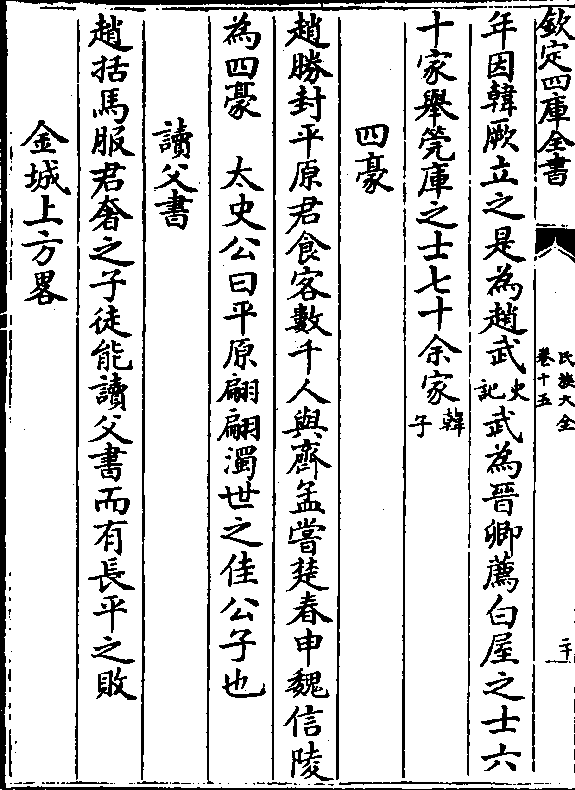 欽定四庫全書
氏族大全
卷十五
二十
年因韓厥立之是為趙武史記武為晉卿薦白屋之士六
十家舉筦庫之士七十余家韓子
四豪
趙勝封平原君食客數千人與齊孟嘗楚春申魏信陵
為四豪　太史公曰平原翩翩濁世之佳公子也
讀父書
趙括馬服君奢之子徒能讀父書而有長平之敗
金城上方畧